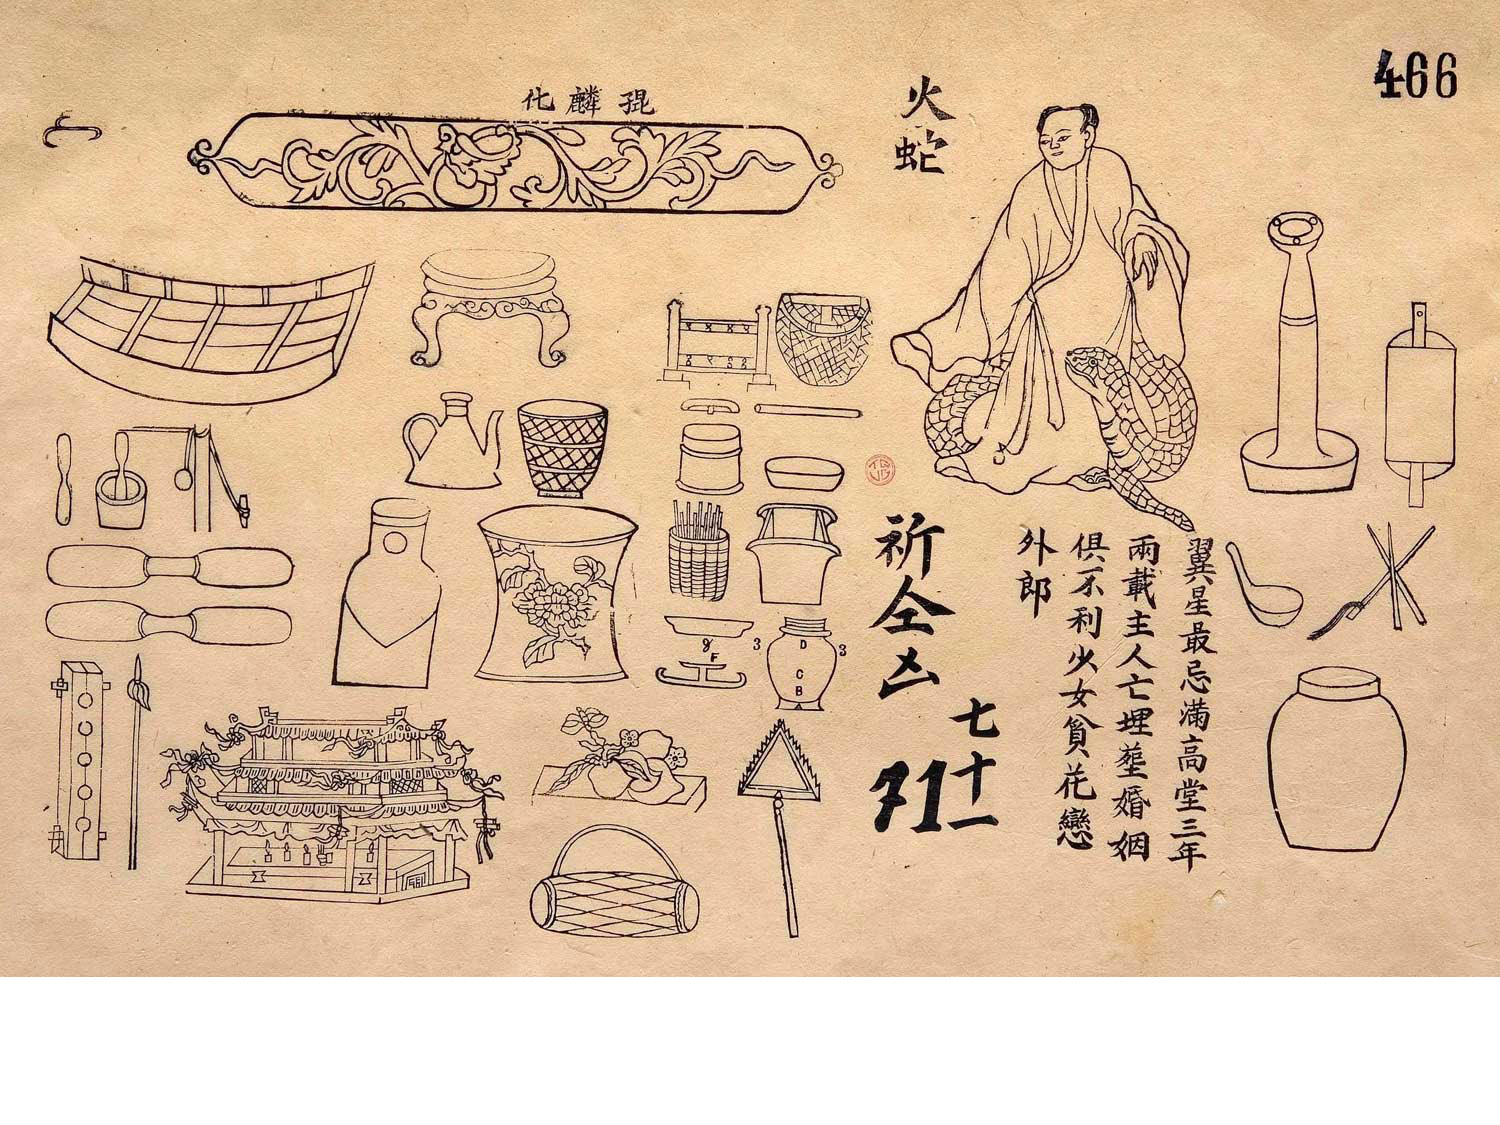 466
麟化
火
蛇
翼星最忌滿高堂三年
兩載主人亡埋塟婚姻
俱不利少女貧花戀
外郎
祈仝凶
七十一
71
g
F
3
D
3
C
B
A